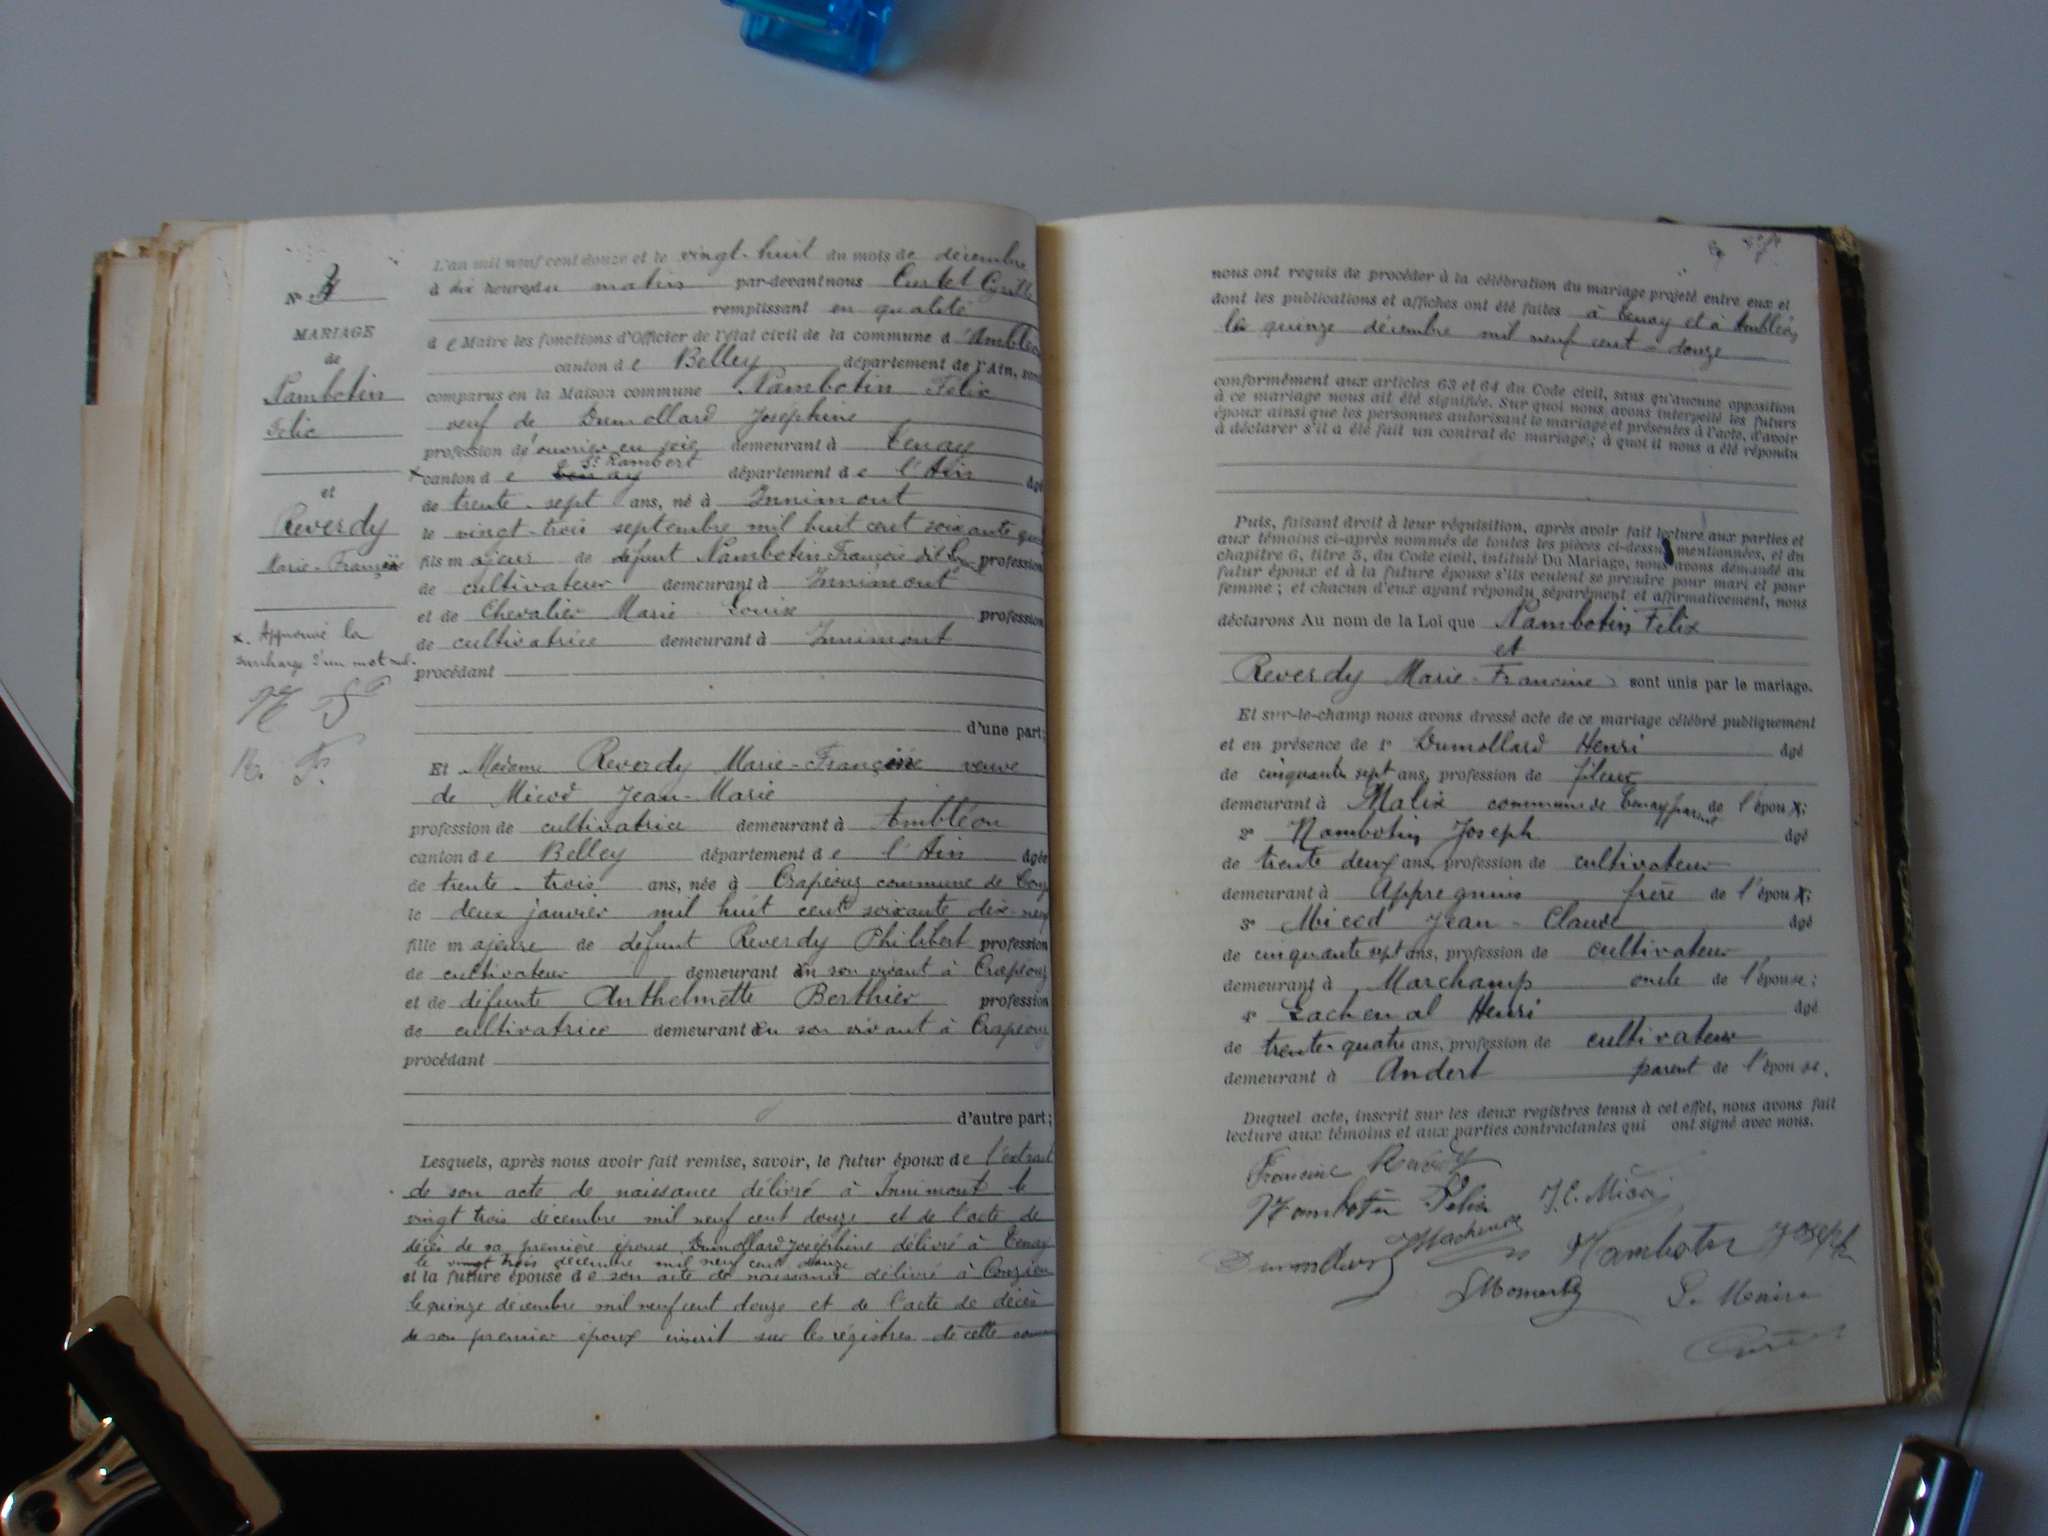 N° 4
MARIAGE
de
Nambotin
Félix
et
Reverdy
Marie-Francine
x. Approuvé la
surcharge d'un mot nul.
N F
R. F.
L'an mil neuf cent douze et le vingt-huit du mois de décembre
à dix heures du matin par-devant nous Curtet Cyrille
remplissant en qualité
de Maire les fonctions d'Officier de l'état civil de la commune d'Ambléon
canton de Belley département de l'Ain, sont
comparus en la Maison commune Nambotin Félix
veuf de Dumollard Joséphine
profession d'ouvrier en soie demeurant à Tenay
St Rambert
x canton de Tenay département de l'Ain âgé
de trente-sept ans, né à Innimont
le vingt-trois septembre mil huit cent soixante
fils majeur de défunt Nambotin François dit profession
de cultivateur demeurant à Innimont
et de Chevalier Marie-Louise profession
de cultivatrice demeurant à Innimont
procédant
d'une part;
Et Madame Reverdy Marie-Francine veuve
de Micod Jean-Marie
profession de cultivatrice demeurant à Ambléon
canton de Belley département de l'Ain âgée
de trente-trois ans, née à Crapéou commune de
le deux janvier mil huit cent soixante dix-neuf
fille majeure de défunt Reverdy Philibert profession
de cultivateur demeurant en son vivant à Crapéou
et de défunte Anthelmette Berthier profession
de cultivatrice demeurant en son vivant à Crapéou
procédant
d'autre part;
Lesquels, après nous avoir fait remise, savoir, le futur époux de l'extrait
de son acte de naissance délivré à Innimont le
vingt trois décembre mil neuf cent douze et de l'acte de
décès de sa première épouse Dumollard Joséphine délivré à Tenay
le vingt trois décembre mil neuf cent douze
et la future épouse de son acte de naissance délivré à Conzieu
le quinze décembre mil neuf cent douze et de l'acte de décès
de son premier époux inscrit sur les régistres de cette
nous ont requis de procéder à la célébration du mariage projeté entre eux et
dont les publications et affiches ont été faites à Tenay et à Ambléon
le quinze décembre mil neuf cent-douze
conformément aux articles 63 et 64 du Code civil, sans qu'aucune opposition
à ce mariage nous ait été signifiée. Sur quoi nous avons interpellé les futurs
époux ainsi que les personnes autorisant le mariage et présentes à l'acte, d'avoir
à déclarer s'il a été fait un contrat de mariage; à quoi il nous a été répondu
Puis, faisant droit à leur réquisition, après avoir fait lecture aux parties et
aux témoins ci-après nommés de toutes les pièces ci-dessus mentionnées, et du
chapitre 6, titre 5, du Code civil, intitulé Du Mariage, nous avons demandé au
futur époux et à la future épouse s'ils veulent se prendre pour mari et pour
femme; et chacun d'eux ayant répondu séparément et affirmativement, nous
déclarons Au nom de la Loi que Nambotin Félix
et
Reverdy Marie-Francine sont unis par le mariage.
Et sur-le-champ nous avons dressé acte de ce mariage célébré publiquement
et en présence de 1° Dumollard Henri âgé
de cinquante sept ans, profession de fileur
demeurant à Malix commune de Tenay parent de l'époux;
2° Nambotin Joseph âgé
de trente deux ans, profession de cultivateur
demeurant à Appregnin frère de l'époux;
3° Micod Jean-Claude âgé
de cinquante sept ans, profession de cultivateur
demeurant à Marchamp oncle de l'épouse;
4° Lachenal Henri âgé
de trente-quatre ans, profession de cultivateur
demeurant à Andert parent de l'épouse.
Duquel acte, inscrit sur les deux registres tenus à cet effet, nous avons fait
lecture aux témoins et aux parties contractantes qui ont signé avec nous.
Francine Reverdy
Nambotin Félix J.C. Micod
Nambotin Joseph
Le Maire
Curtet